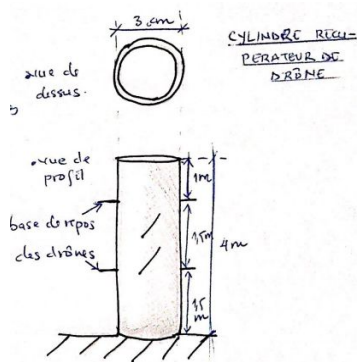 3 cm
CYLINDRE RÉCU-
PERATEUR DE
DRÔNE
vue de
dessus.
vue de
profil
1m
base de repos
des drônes
1,5m
4m
1,5
m